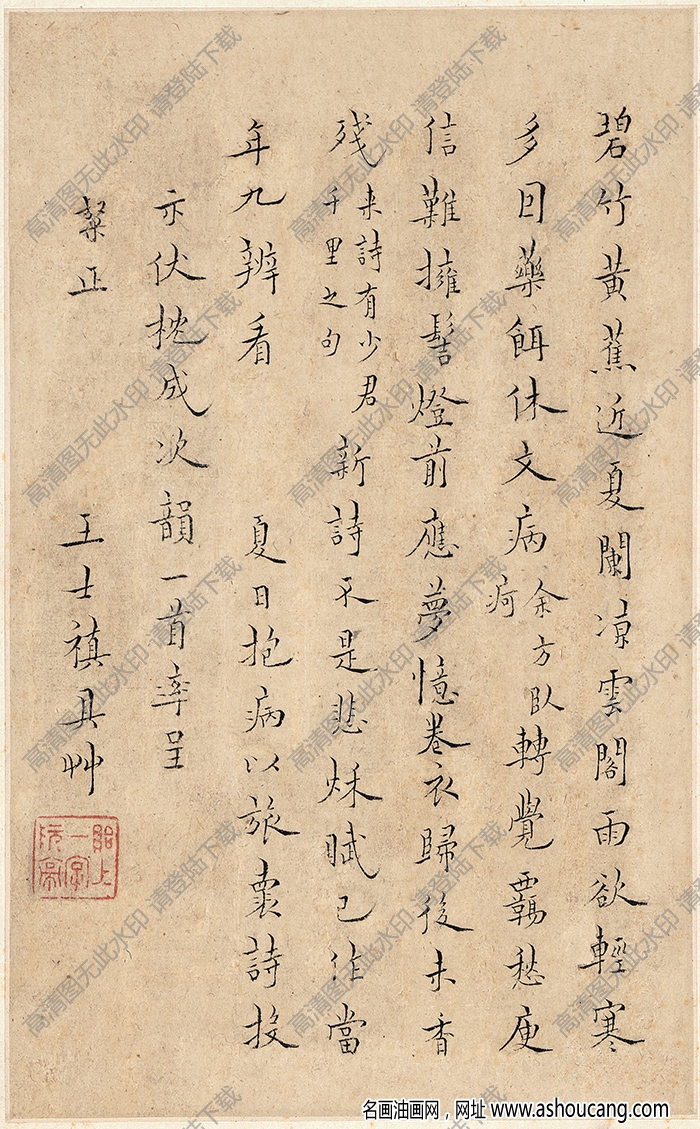 碧竹黃蕉近夏闌涼雲閣雨欲輕寒
多囙藥餌休文病余方臥疴轉覺羈愁庾
信難擁髻燈前應夢憶卷衣歸後未香
殘來詩有少君千里之句新詩不是悲秋賦已作當
年九辨看 夏日抱病以旅褱詩投
示伏枕成次韻一首率呈
粲正 王士禛具艸
貽上一字阮亭
高清图无此水印 请登陆下载
名画油画网，网址 www.ashoucang.com